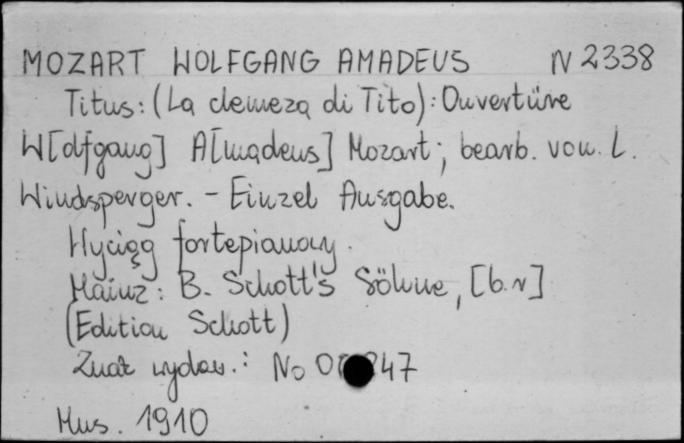 MOZART WOLFGANG AMADEUS N 2338
Titus: (La clemeza di Tito): Ouvertüre
W[olfgang] A[madeus] Mozart; bearb. von. L.
Windsperger. - Einzel Ausgabe.
Wyciąg fortepianowy.
Mainz: B. Schott's Söhne, [b.r]
(Edition Schott)
Znak wydaw.: No 47
Mus. 1910